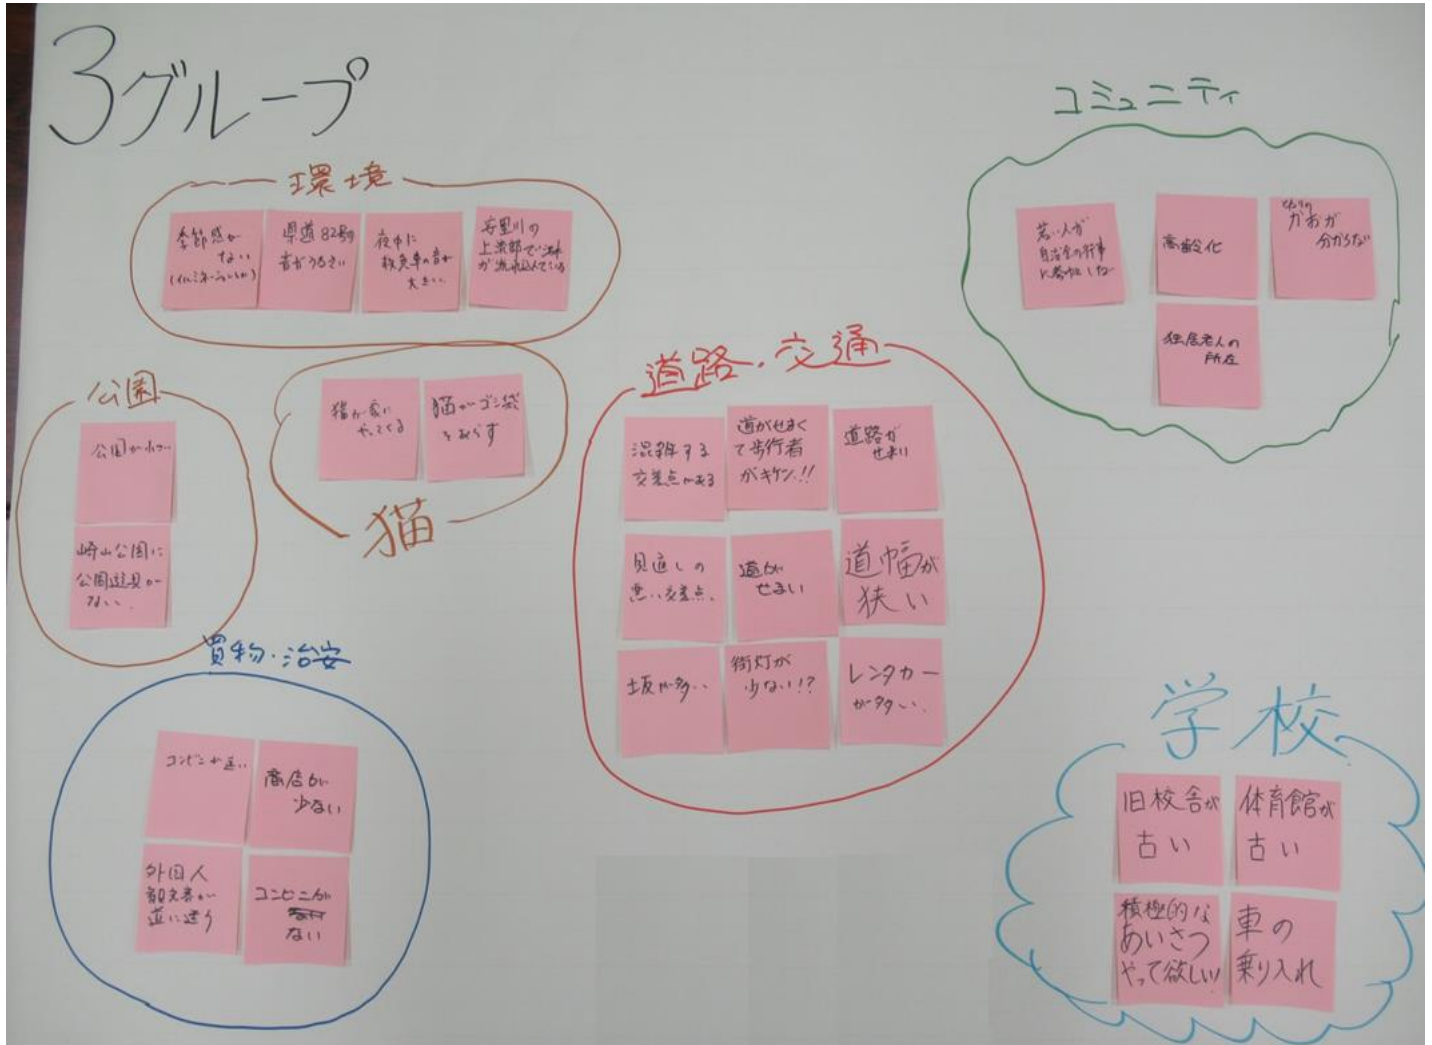 3グループ
環境
季節感が
ない
(イルミネーションしか)
県道82号の
音がうるさい
夜中に
救急車の音が
大きい
安里川の
上流部で汚水
が流れ込んでいる
コミュニティ
若い人が
自治会の行事
に参加しない
高齢化
となりの
かおが
分からない
独居老人の
所在
公園
公園が小さい
崎山公園に
公園遊具が
ない。
猫が家に
やってくる
猫がゴミ袋
をあらす
猫
道路・交通
混雑する
交差点がある
道がせまく
て歩行者
がキケン!!
道路が
せまい
見通しの
悪い交差点。
道が
せまい
道幅が
狭い
坂が多い
街灯が
少ない!?
レンタカー
が多い。
買物・治安
コンビニが遠い
商店が
少ない
外国人
観光客が
道に迷う
コンビニが
ない
学校
旧校舎が
古い
体育館が
古い
積極的な
あいさつ
やって欲しい!
車の
乗り入れ